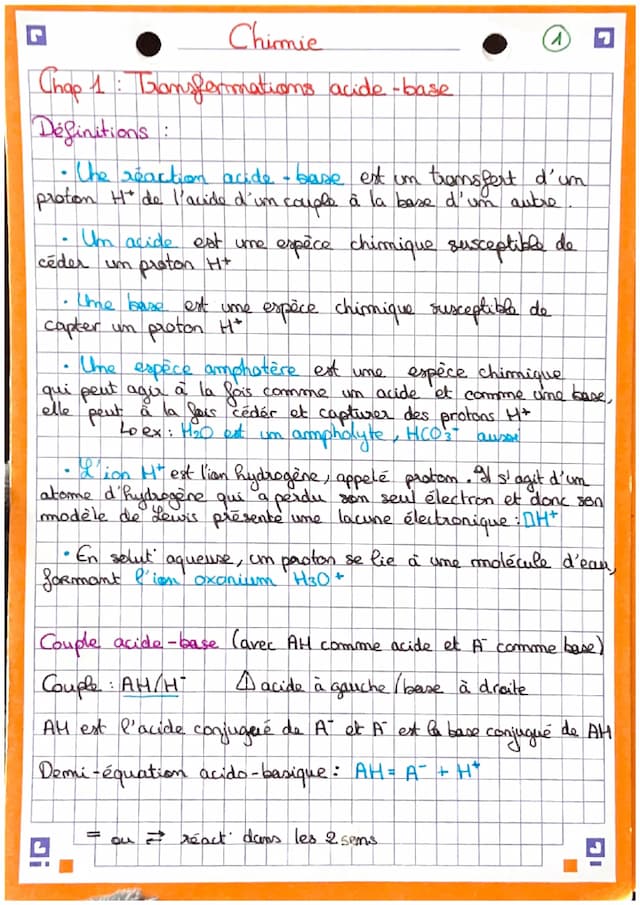 Chimie
1
Chap 1 : Transformations acide-base
Définitions :
• Une réaction acide-base est un transfert d'un
proton H⁺ de l'acide d'un couple à la base d'un autre.
• Un acide est une espèce chimique susceptible de
céder un proton H⁺
• Une base est une espèce chimique susceptible de
capter un proton H⁺
• Une espèce amphotère est une espèce chimique
qui peut agir à la fois comme un acide et comme une base,
elle peut à la fois céder et capturer des protons H⁺
↳ ex : H₂O est un ampholyte, HCO₃⁻ aussi
• L'ion H⁺ est l'ion hydrogène, appelé proton. Il s'agit d'un
atome d'hydrogène qui a perdu son seul électron et donc son
modèle de Lewis présente une lacune électronique : ▯H⁺
• En solut° aqueuse, un proton se lie à une molécule d'eau,
formant l'ion oxonium H₃O⁺
Couple acide-base (avec AH comme acide et A⁻ comme base)
Couple : AH/H⁻ ⚠ acide à gauche / base à droite
AH est l'acide conjugué de A⁻ et A⁻ est la base conjugué de AH
Demi-équation acido-basique : AH = A⁻ + H⁺
= ou ⇄ réact° dans les 2 sens